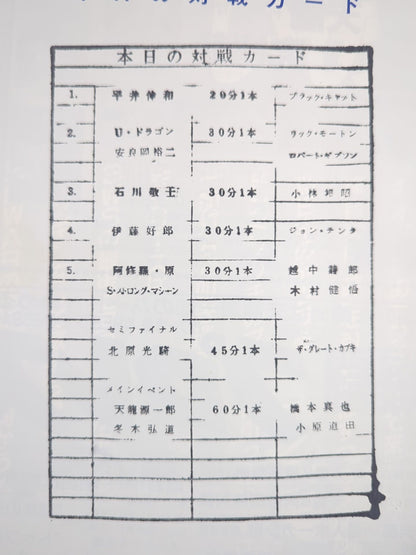 対戦カード
本日の対戦カード
1. 平井伸和 20分1本 ブラック・キャット
2. U・ドラゴン 30分1本 リック・モートン
安良岡裕二 ロバート・ギブソン
3. 石川敬士 30分1本 小林邦昭
4. 伊藤好郎 30分1本 ジョン・テンタ
5. 阿修羅・原 30分1本 越中詩郎
S・ストロング・マシーン 木村健悟
セミファイナル
北原光騎 45分1本 ザ・グレート・カブキ
メインイベント
天龍源一郎 60分1本 橋本真也
冬木弘道 小原道由